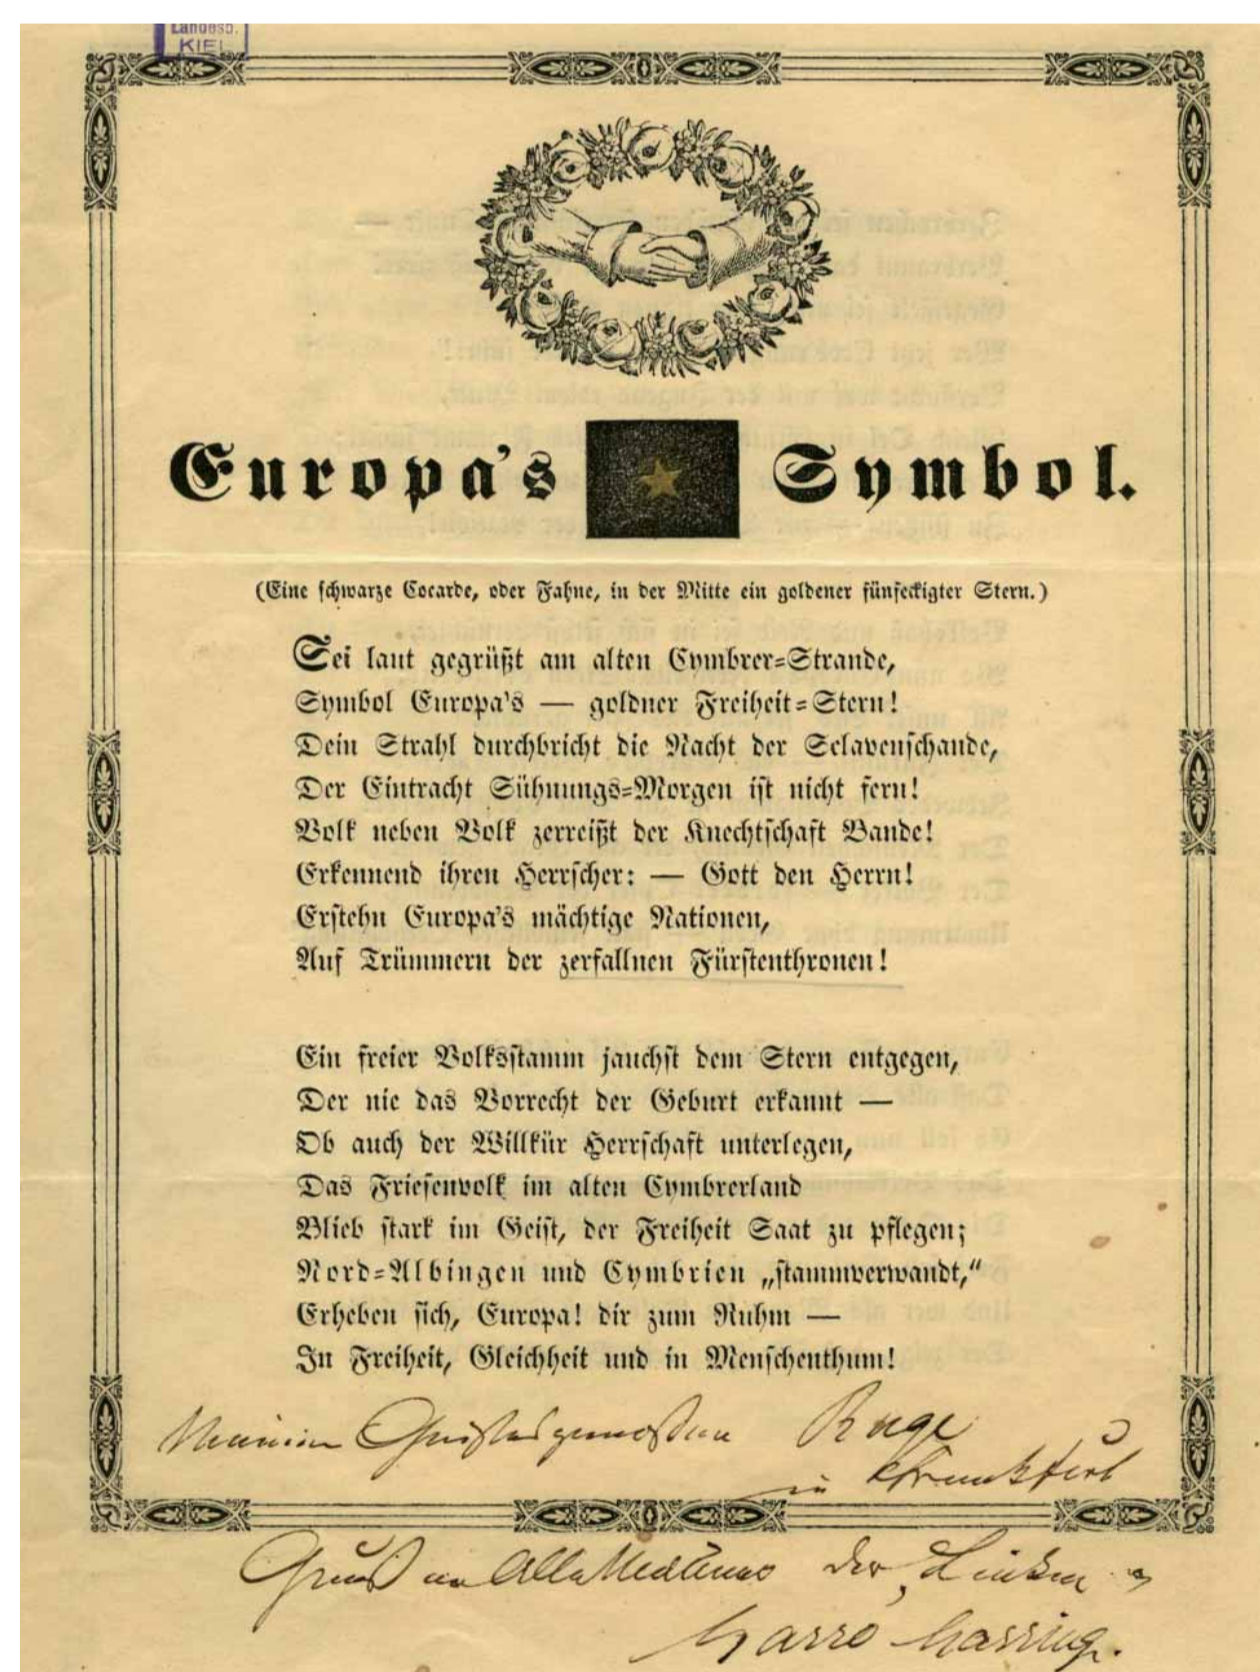 Landesb.
KIEL
Europa's Symbol.
(Eine schwarze Cocarde, oder Fahne, in der Mitte ein goldener fünfeckigter Stern.)
Sei laut gegrüßt am alten Cymbrer-Strande,
Symbol Europa's — goldner Freiheit-Stern!
Dein Strahl durchbricht die Nacht der Sclavenschande,
Der Eintracht Sühnungs-Morgen ist nicht fern!
Volk neben Volk zerreißt der Knechtschaft Bande!
Erkennend ihren Herrscher: — Gott den Herrn!
Erstehn Europa's mächtige Nationen,
Auf Trümmern der zerfallnen Fürstenthronen!
Ein freier Volksstamm jauchst dem Stern entgegen,
Der nie das Vorrecht der Geburt erkannt —
Ob auch der Willkür Herrschaft unterlegen,
Das Friesenvolk im alten Cymbrerland
Blieb stark im Geist, der Freiheit Saat zu pflegen;
Nord-Albingen und Cymbrien „stammverwandt,“
Erheben sich, Europa! dir zum Ruhm —
In Freiheit, Gleichheit und in Menschenthum!
Meinem Geistesgenossen Ruge
in Frankfurt
Gruß an Alle der Linken
Harro Harring.